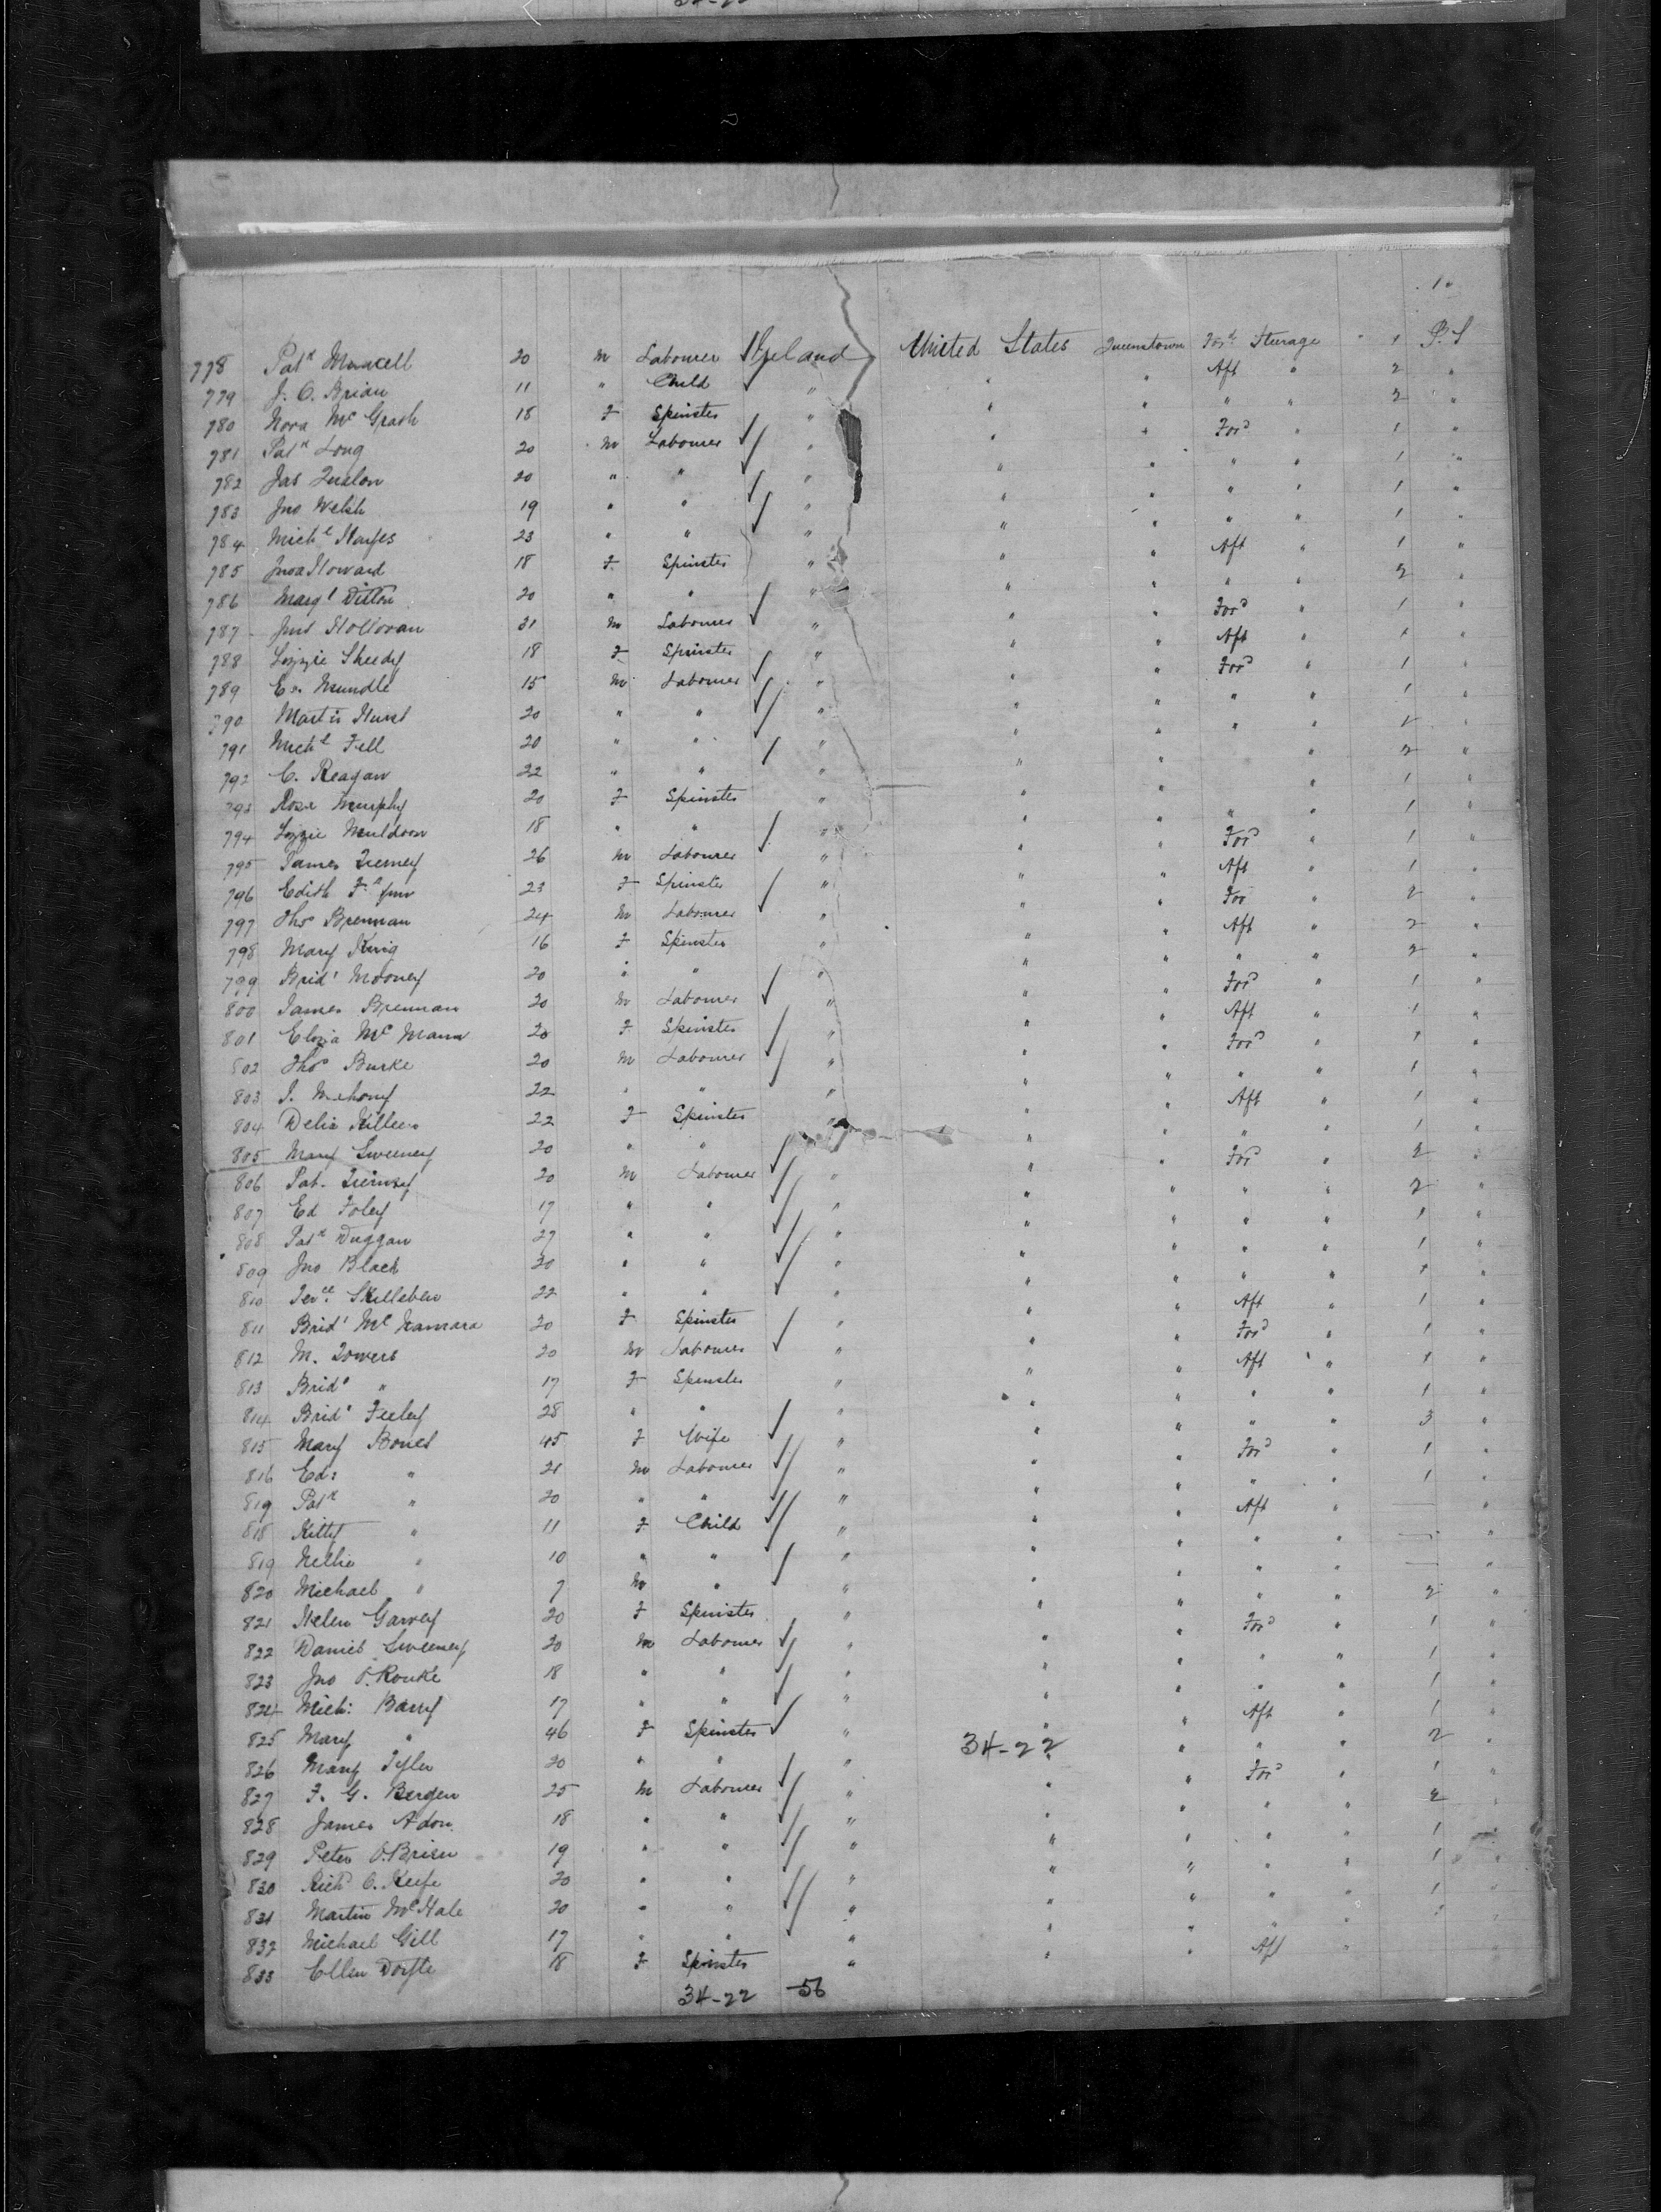 34-22
1"
778 Patk Maxcell 20 m Labourer Ireland United States Queenstown Ford Sterage 1 P.S
779 J. O. Brian 11 " Child " " " Aft " 2 "
780 Nora Mc Grath 18 F Spinster " " " " " 2 "
781 Patk Long 20 m Labourer " " " Ford " 1 "
782 Jas 20 " " " " " " " 1 "
783 Jno Welsh 19 " " " " " " " 1 "
784 Michl Hayes 23 " " " " " " " 1 "
785 Howard 18 F Spinster " " " Aft " 1 "
786 Margt 20 " " " " " " " 2 "
787 Holloran 21 m Labourer " " " Ford " 1 "
788 Lizzie Sheedy 18 F Spinster " " " Aft " 1 "
789 Ed. Mundle 15 m Labourer " " " Ford " 1 "
790 Martin Hurst 20 " " " " " " " 1 "
791 Michl Fell 20 " " " " " " " 1 "
792 C. Reagan 22 " " " " " " 2 "
793 Rose Murphy 20 F Spinster " " " " 1 "
794 Lizzie Muldoon 18 " " " " " " " 1 "
795 James Tierney 26 m Labourer " " " Ford " 1 "
796 Edith 23 F Spinster " " " Aft " 1 "
797 Thos Brennan 24 m Labourer " " " For " 2 "
798 Mary King 16 F Spinster " " " Aft " 2 "
799 Bridt Mooney 20 " " " " " " " 2 "
800 James Brennan 20 m Labourer " " " Ford " 1 "
801 Eliza Mc Mann 20 F Spinster " " " Aft " 1 "
802 Thos Burke 20 m Labourer " " " Ford " 1 "
803 J. Mehony 22 " " " " " " " 1 "
804 Delia Killeen 22 F Spinster " " " Aft " 1 "
805 Mary Sweeney 20 " " " " " " " 1 "
806 Pat. Tierney 20 m Labourer " " " Ford " 2 "
807 Ed Foley 17 " " " " " " " 2 "
808 Patk Duggan 27 " " " " " " " 1 "
809 Jno Black 30 " " " " " " " 1 "
810 Skelleben 22 " " " " " " " 1 "
811 Bridt Mc Namara 20 F Spinster " " " Aft " 1 "
812 M. Towers 20 m Labourer " " " Ford " 1 "
813 Bridt " 17 F Spinster " " " Aft " 1 "
814 Bridt Feeley 28 " " " " " " " 1 "
815 Mary Bones 45 F Wife " " " " " 3 "
816 Ed: " 21 m Labourer " " " Ford " 1 "
819 Patk " 20 " " " " " " " 1 "
818 Kitty " 11 F Child " " " Aft " — "
819 Nellie " 10 " " " " " " " — "
820 Michael " 7 m " " " " " " — "
821 Helen Garvey 20 F Spinster " " " " " 2 "
822 Daniel Sweeney 20 m Labourer " " " Ford " 1 "
823 Jno O.Rouke 18 " " " " " " " 1 "
824 Mich: Barry 17 " " " " " " " 1 "
825 Mary " 46 F Spinster " " " Aft " 1 "
826 Mary Tyler 20 " " " 34-22 " " " 2 "
827 F. G. Bergen 25 m Labourer " " " Ford " 1 "
828 James Adon 18 " " " " " " " 2 "
829 Peter O.Brien 19 " " " " " " " 1 "
830 Richd O.Keefe 20 " " " " " " " 1 "
831 Martin McHale 20 " " " " " " " 1 "
832 Michael Gill 17 " " " " " " "
833 Ellen Doyle 18 F Spinster " " " Aft "
34-22 56